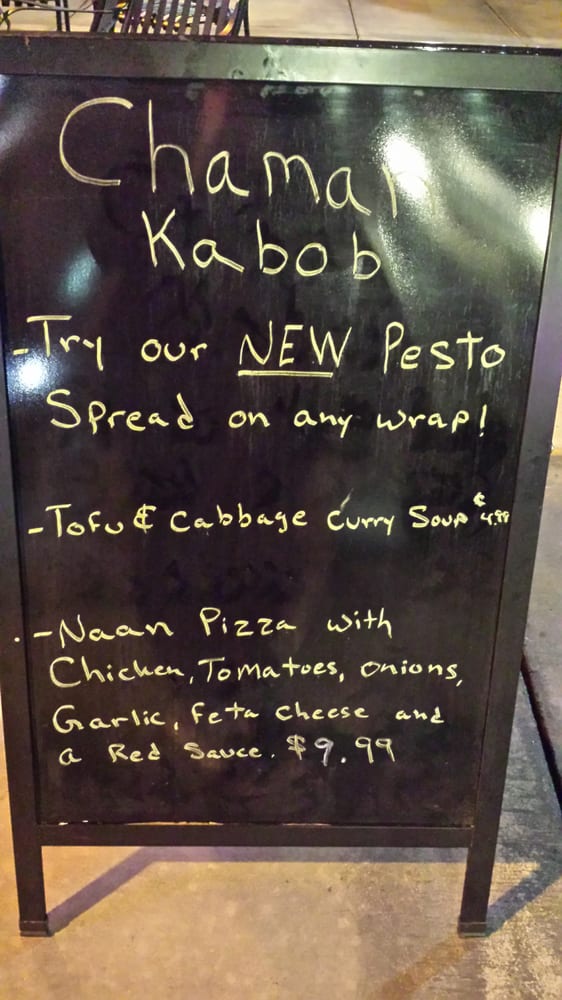 Chaman
Kabob
- Try our NEW Pesto
Spread on any wrap!
- Tofu & Cabbage Curry Soup $4.99
- Naan Pizza with
Chicken, Tomatoes, onions,
Garlic, feta cheese and
a Red Sauce. $9.99